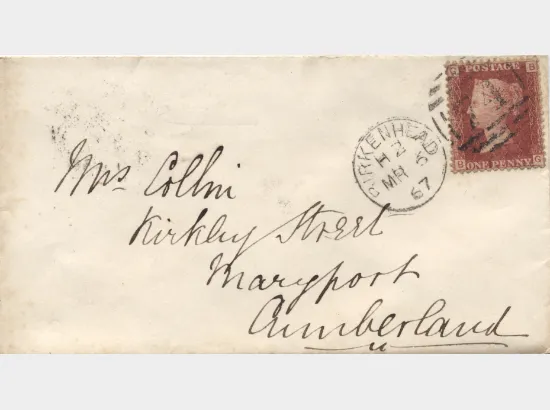 POSTAGE
ONE PENNY
BIRKENHEAD
H 2
MR 6
67
Mrs Collin
Kirkby Street
Maryport
Cumberland